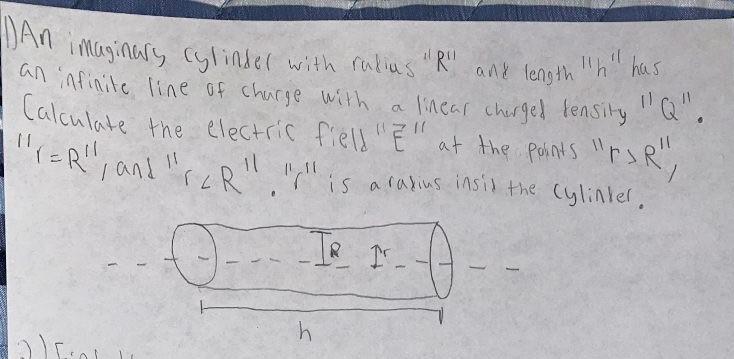 1) An imaginary cylinder with radius "R" and length "h" has
an infinite line of charge with a linear charged density "Q".
Calculate the electric field "E⃗" at the points "r>R",
"r=R", and "r<R". "r" is a radius insid the cylinder.
R r
h
2)